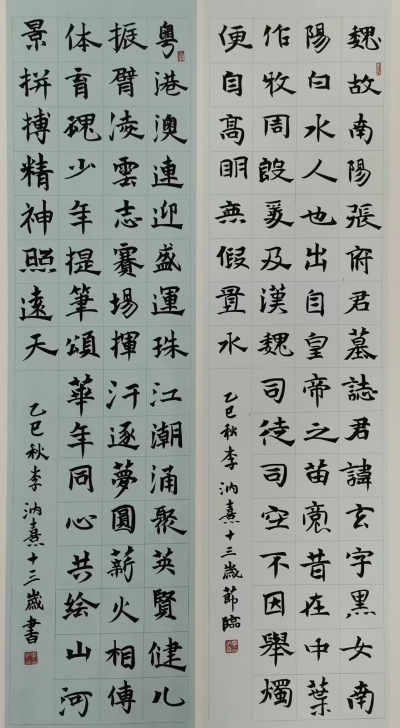 魏故南陽張府君墓誌君諱玄字黑女南
陽白水人也出自皇帝之苗裔昔在中葉
作牧周殷爰及漢魏司徒司空不因舉燭
便自高明無假置水
乙巳秋李汭熹十三歲節臨
粤港澳連迎盛運珠江潮涌聚英賢健儿
振臂淩雲志賽場揮汗逐夢圓薪火相傳
体育魂少年提筆頌華年同心共绘山河
景拼搏精神照遠天
乙巳秋李汭熹十三歲書